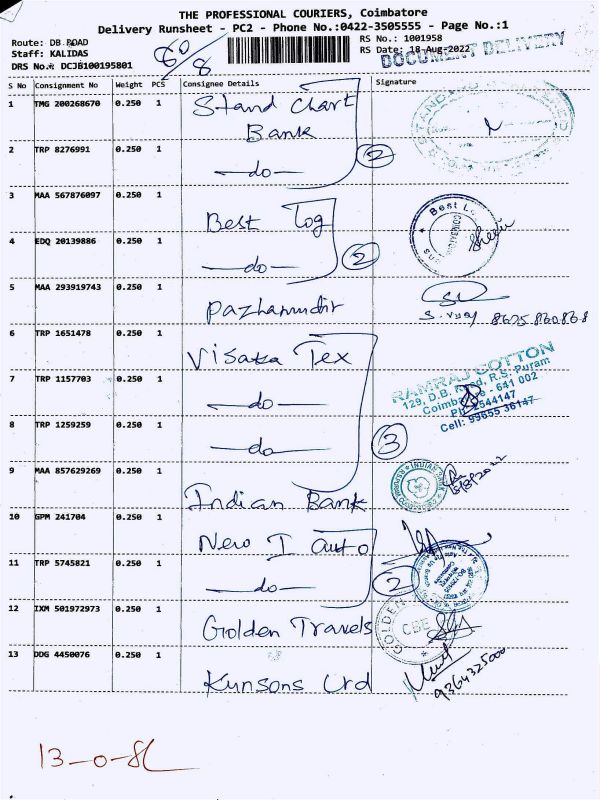 THE PROFESSIONAL COURIERS, Coimbatore
Delivery Runsheet - PC2 - Phone No.:0422-3505555 - Page No.:1
Route: DB.ROAD
Staff: KALIDAS
DRS No.: DCJB100195801
60/8
RS No.: 1001958
RS Date: 18-Aug-2022
DOCUMENT DELIVERY
S No Consignment No Weight PCS Consignee Details Signature
1 TMG 200268670 0.250 1 Stand Chart Bank
2 TRP 8276991 0.250 1 —do— 2
3 MAA 567876097 0.250 1 Best Log
Best Lo
4 EDQ 20139886 0.250 1 —do— 2
5 MAA 293919743 0.250 1 Pazhamudir
8625 860868
6 TRP 1651478 0.250 1 Visaka Tex
7 TRP 1157703 0.250 1 —do—
RAMRAJ COTTON
129, D.B. Road, R.S. Puram
Coimbatore - 641 002
Ph: 2544147
Cell: 99655 36147
8 TRP 1259259 0.250 1 —do— 3
9 MAA 857629269 0.250 1 Indian Bank
INDIAN BANK
10 GPM 241704 0.250 1 New I auto
11 TRP 5745821 0.250 1 —do— 2
12 IXM 501972973 0.250 1 Golden Travels
GOLDEN
CBE
13 DOG 4450076 0.250 1 Kunsons Lrd
9364325000
13-0-8